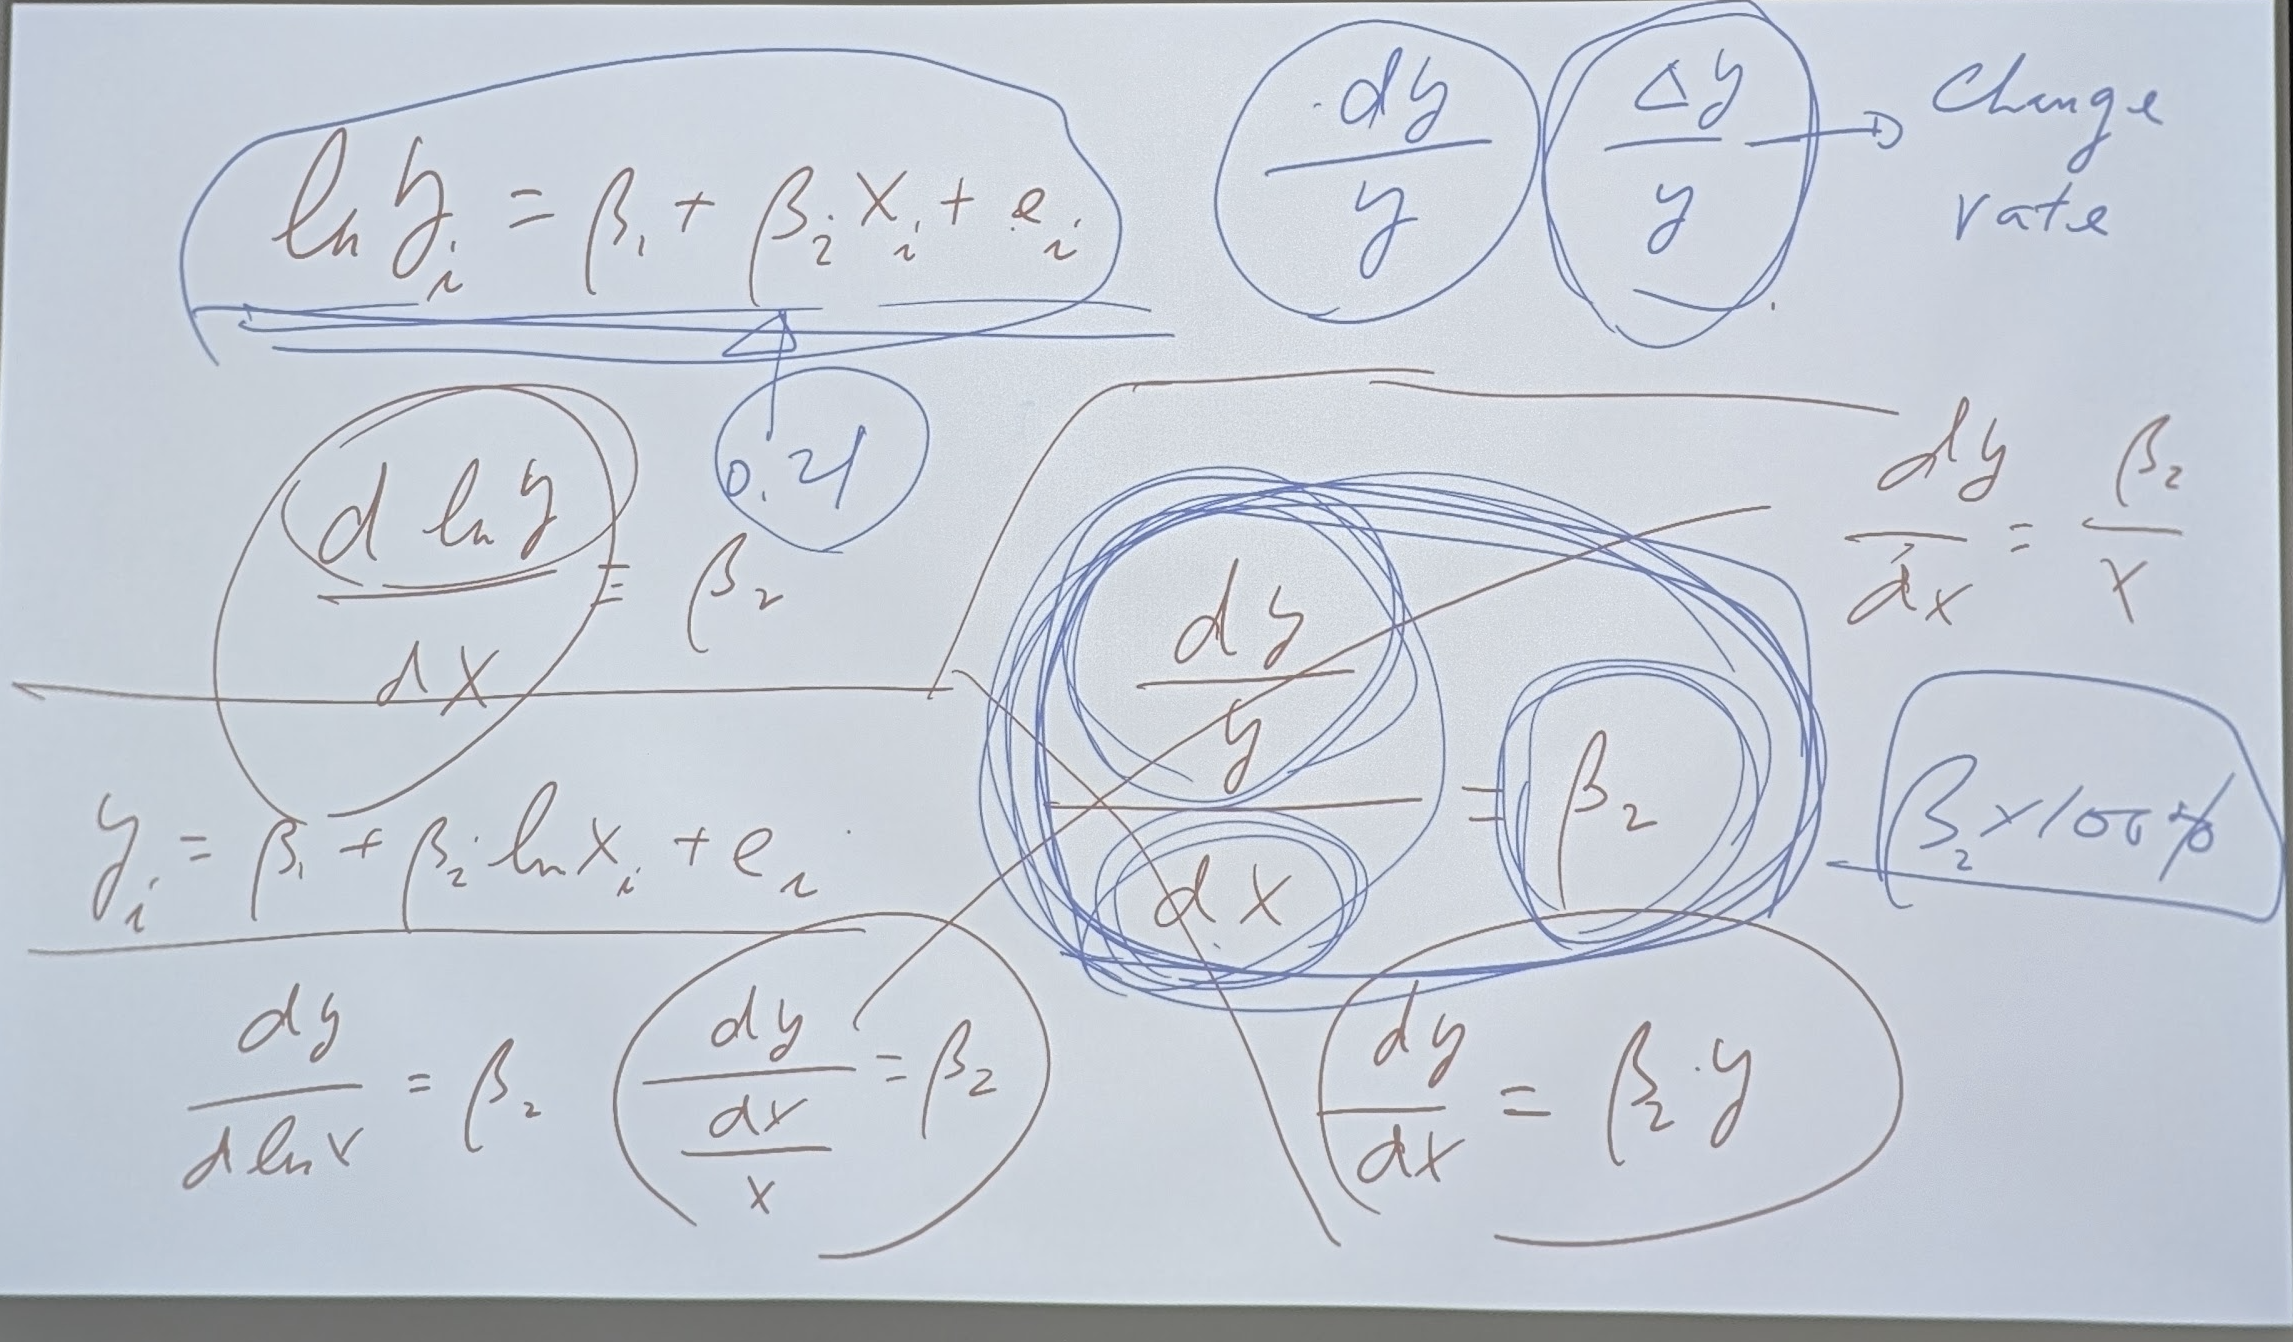 ln yᵢ = β₁ + β₂ xᵢ + eᵢ
dy/y
Δy/y → Change rate
0.21
d ln y / dx = β₂
(dy/y) / dx = β₂
dy/dx = β₂/x
β₂ × 100%
yᵢ = β₁ + β₂ · ln xᵢ + eᵢ
dy / d ln x = β₂
dy / (dx/x) = β₂
dy/dx = β₂ · y